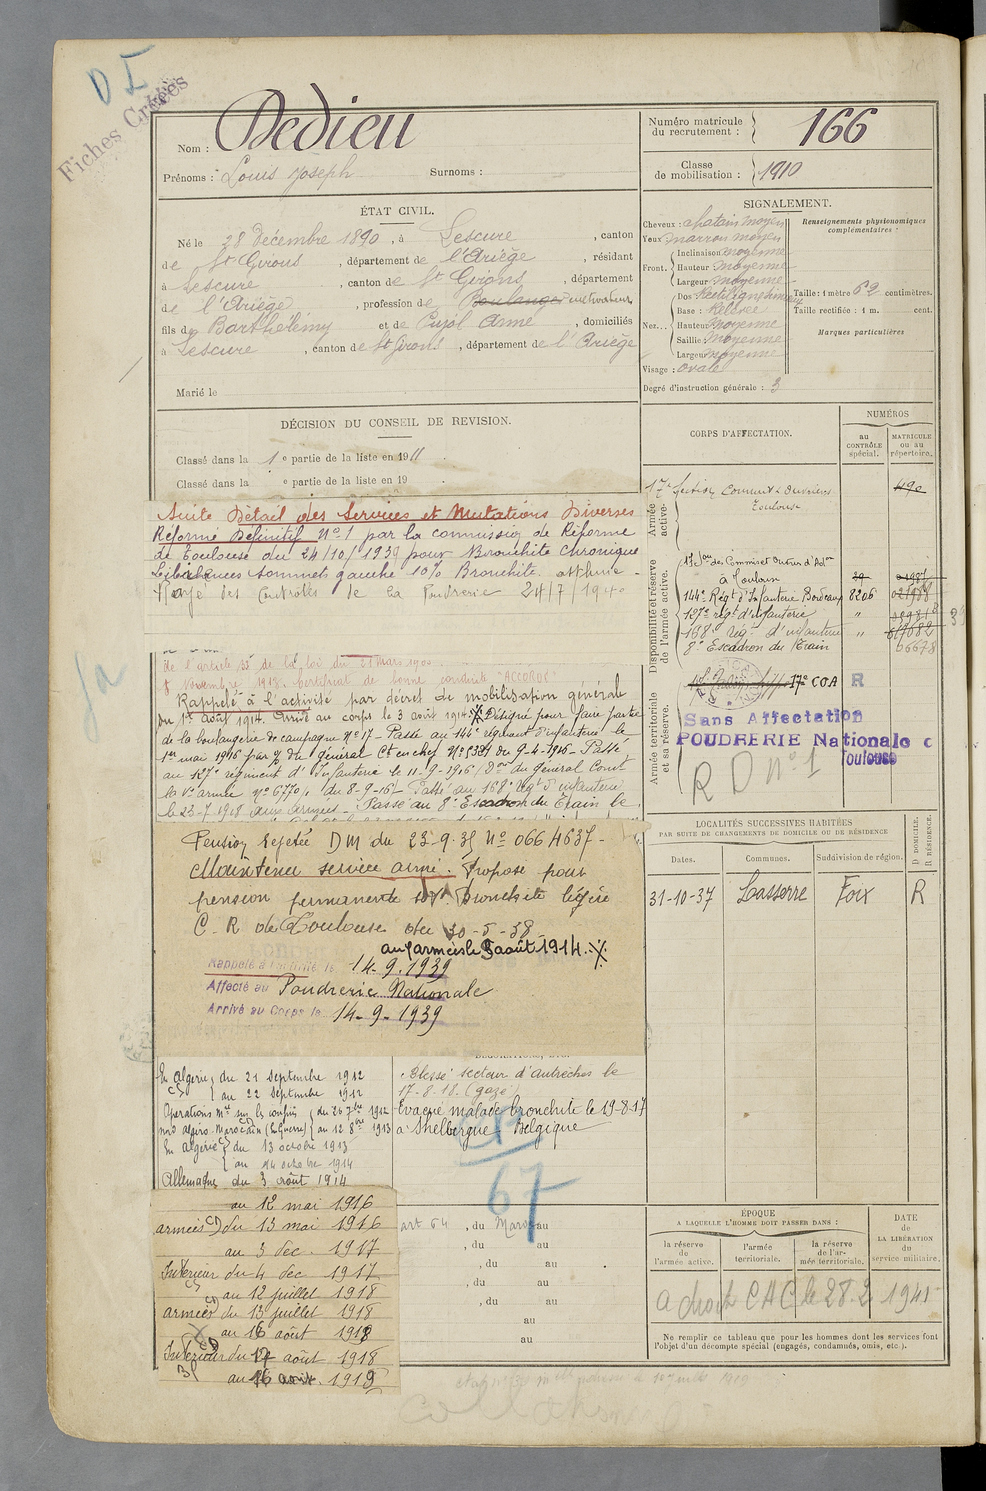 D I
Fiches Créées
Nom : Dedieu
Prénoms : Louis Joseph Surnoms :
Numéro matricule du recrutement : 166
Classe de mobilisation : 1910
ÉTAT CIVIL.
Né le 28 Décembre 1890, à Lescure, canton
de St Girons, département de l'Ariège, résidant
à Lescure, canton de St Girons, département
de l'Ariège, profession de Boulanger cultivateur
fils de Barthélémy et de Pujol Anne, domiciliés
à Lescure, canton de St Girons, département de l'Ariège
Marié le
SIGNALEMENT.
Cheveux : chatain moyen
Yeux marron moyen
Front. Inclinaison moyenne
Hauteur moyenne
Largeur moyenne
Nez... Dos Rectiligne
Base : Relevée
Hauteur moyenne
Saillie : moyenne
Largeur moyenne
Visage : ovale
Degré d'instruction générale : 3
Renseignements physionomiques complémentaires :
Taille : 1 mètre 62 centimètres.
Taille rectifiée : 1 m. cent.
Marques particulières
DÉCISION DU CONSEIL DE REVISION.
Classé dans la 1e partie de la liste en 1911.
Classé dans la e partie de la liste en 19 .
Suite Détail des Services et Mutations Diverses
Réformé Définitif No 1 par la commission de Réforme
de Toulouse du 24/10/1939 pour Bronchite Chronique
sommet gauche 10% Bronchite.
Rayé des Controles de la Poudrerie 24/7/1940
de l'article 33 de la loi du 21 Mars 190
certificat de bonne conduite "ACCORDÉ"
Rappelé à l'activité par décret de mobilisation générale
du 1er août 1914. Arrivé au corps le 3 août 1914. Désigné pour faire partie
de la boulangerie de campagne No 17 - Passé au 144e régiment d'infanterie le
1er mai 1916 par du général Ct en chef No du 9-4-1916 - Passé
au 127e régiment d'Infanterie le 11-9-1916, Don du Général Comt
la Ve armée No 6770/1 du 8-9-16 - Passé au 168e Régt d'infanterie
le 23-7-1918 aux armées - Passé au 8e Escadron du Train le
Pension Rejetée DM du 23-9-35 No 0664637 -
Maintenu service armé. Proposé pour
pension permanente bronchite légère
C. R de Toulouse du 30-5-38
aux armées le 5 août 1914.
Rappelé à l'activité le 14-9-1939
Affecté au Poudrerie Nationale
Arrivé au Corps le 14-9-1939
CORPS D'AFFECTATION.
NUMÉROS
au CONTRÔLE spécial.
MATRICULE ou au répertoire.
Armée active.
17e Section Commis & Ouvriers Toulouse 490
Disponibilité et réserve de l'armée active.
17 Son des Commis et Ouvriers d'Adon à Toulouse
144e Régt d'Infanterie Bordeaux 8206
127e régt d'infanterie "
168e régt d'infanterie "
8e Escadron du Train 06678
Armée territoriale et sa réserve.
17e COA R
Sans Affectation
POUDRERIE Nationale
Toulouse
R D No 1
LOCALITÉS SUCCESSIVES HABITÉES
PAR SUITE DE CHANGEMENTS DE DOMICILE OU DE RÉSIDENCE
Dates. Communes. Subdivision de région. D DOMICILE. R RÉSIDENCE.
31-10-37 Lasserre Foix R
En Algérie, du 21 septembre 1912
au 22 septembre 1912
Opérations sur les confins du 26 7bre 1912
algéro-marocain (En guerre) au 12 8bre 1913
En Algérie du 13 octobre 1913
au
Allemagne du 3 août 1914
au 12 mai 1916
armées du 13 mai 1916
au 3 dec. 1917
Intérieur du 4 dec 1917
au 12 juillet 1918
armées du 13 juillet 1918
au 16 août 1918
Intérieur du 17 août 1918
au 1919
Blessé secteur d'autrèches le
17-8-18 (gazé)
Evacué malade bronchite le 19-8-17
à Belgique
67
art 64, du Mars au
, du au
, du au
, du au
, du au
au
au
ÉPOQUE
A LAQUELLE L'HOMME DOIT PASSER DANS :
la réserve de l'armée active.
l'armée territoriale.
la réserve de l'armée territoriale.
DATE de LA LIBÉRATION du service militaire.
a droit CAC le 28.2 1941
Ne remplir ce tableau que pour les hommes dont les services font
l'objet d'un décompte spécial (engagés, condamnés, omis, etc.).